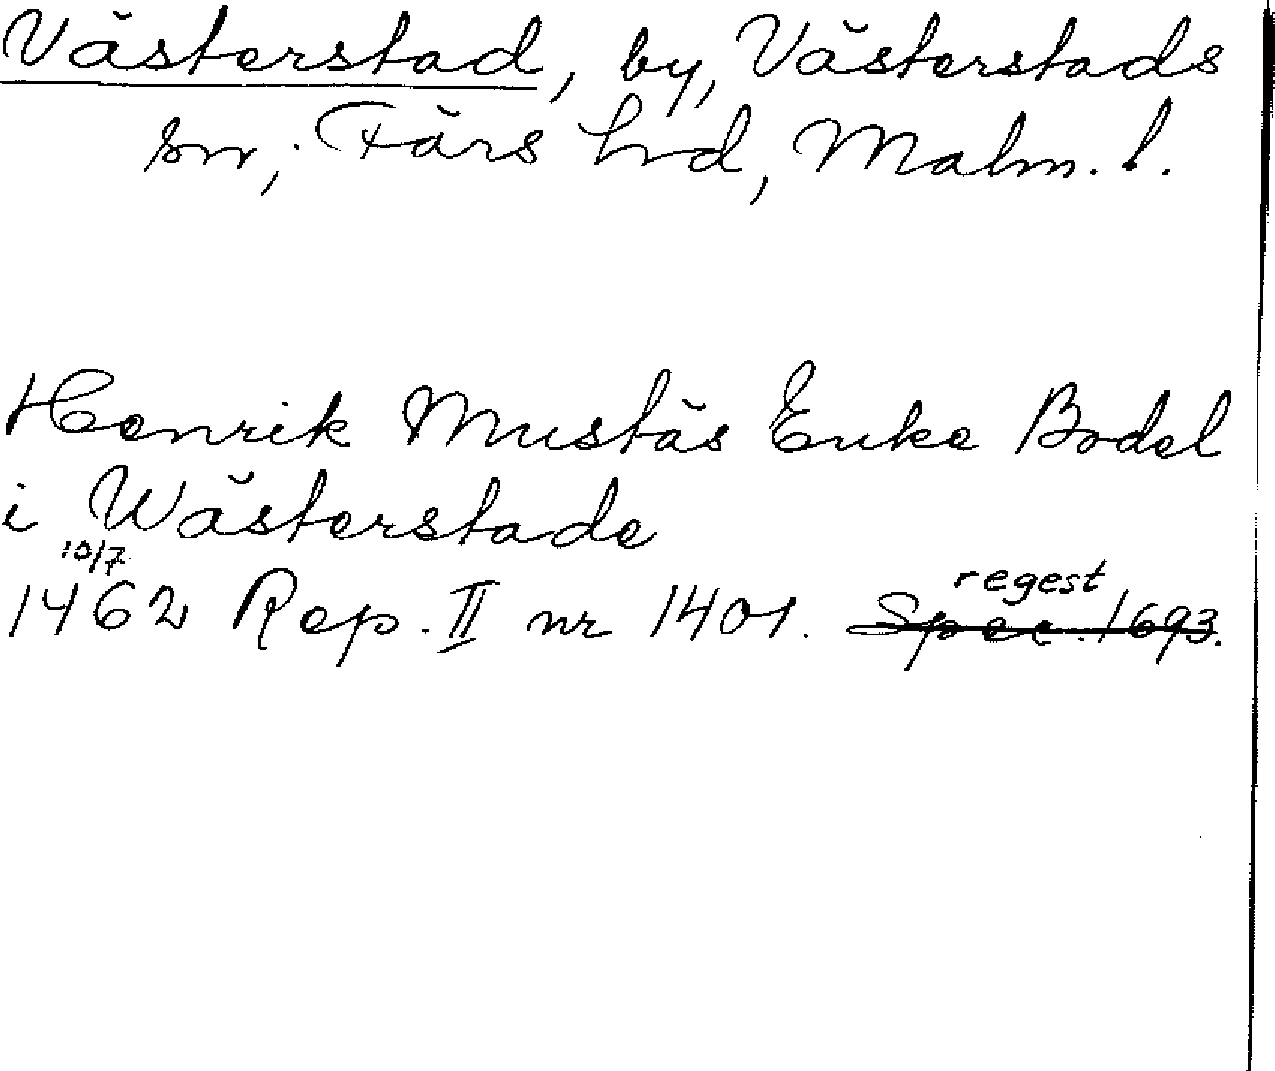 Västerstad, by, Västerstads
sn, Färs hd, Malm. l.
Henrik Mustäs Enke Bodel
i Wästerstade
10/7
1462 Rep. II nr 1401. regest
Spec. 1693.